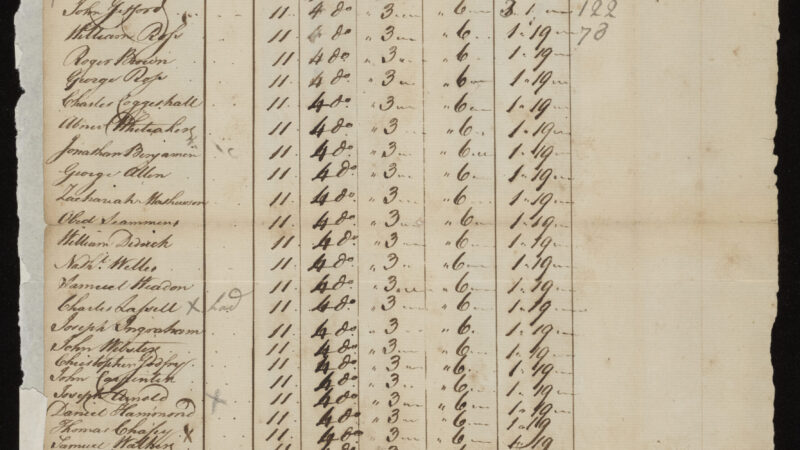 John Gifford 11 4 do " 3 " 6 3 1 122
William Ross 11 4 do " 3 " 6 1 " 19 73
Roger Brown 11 4 do " 3 " 6 1 " 19
George Ross 11 4 do " 3 " 6 1 " 19
Charles Coggeshall 11 4 do " 3 " 6 1 " 19
Abner Whiteaker 11 4 do " 3 " 6 1 " 19
Jonathan Benjamin 11 4 do " 3 " 6 1 " 19
George Allen 11 4 do " 3 " 6 1 " 19
Zachariah Mathewson 11 4 do " 3 " 6 1 " 19
Obed Seammens 11 4 do " 3 " 6 1 " 19
William Didick 11 4 do " 3 " 6 1 " 19
Nath.l Welles 11 4 do " 3 " 6 1 " 19
Samuel Weadon 11 4 do " 3 " 6 1 " 19
Charles Lassell x had 11 4 do " 3 " 6 1 " 19
Joseph Ingraham 11 4 do " 3 " 6 1 " 19
John Webster 11 4 do " 3 " 6 1 " 19
Christopher Godfrey 11 4 do " 3 " 6 1 " 19
John Carpenter 11 4 do " 3 " 6 1 " 19
Joseph Arnold x 11 4 do " 3 " 6 1 " 19
Daniel Hammond 11 4 do " 3 " 6 1 " 19
Thomas Chasey x 11 4 do " 3 " 6 1 " 19
Samuel Walker 11 4 do " 3 " 6 1 " 19